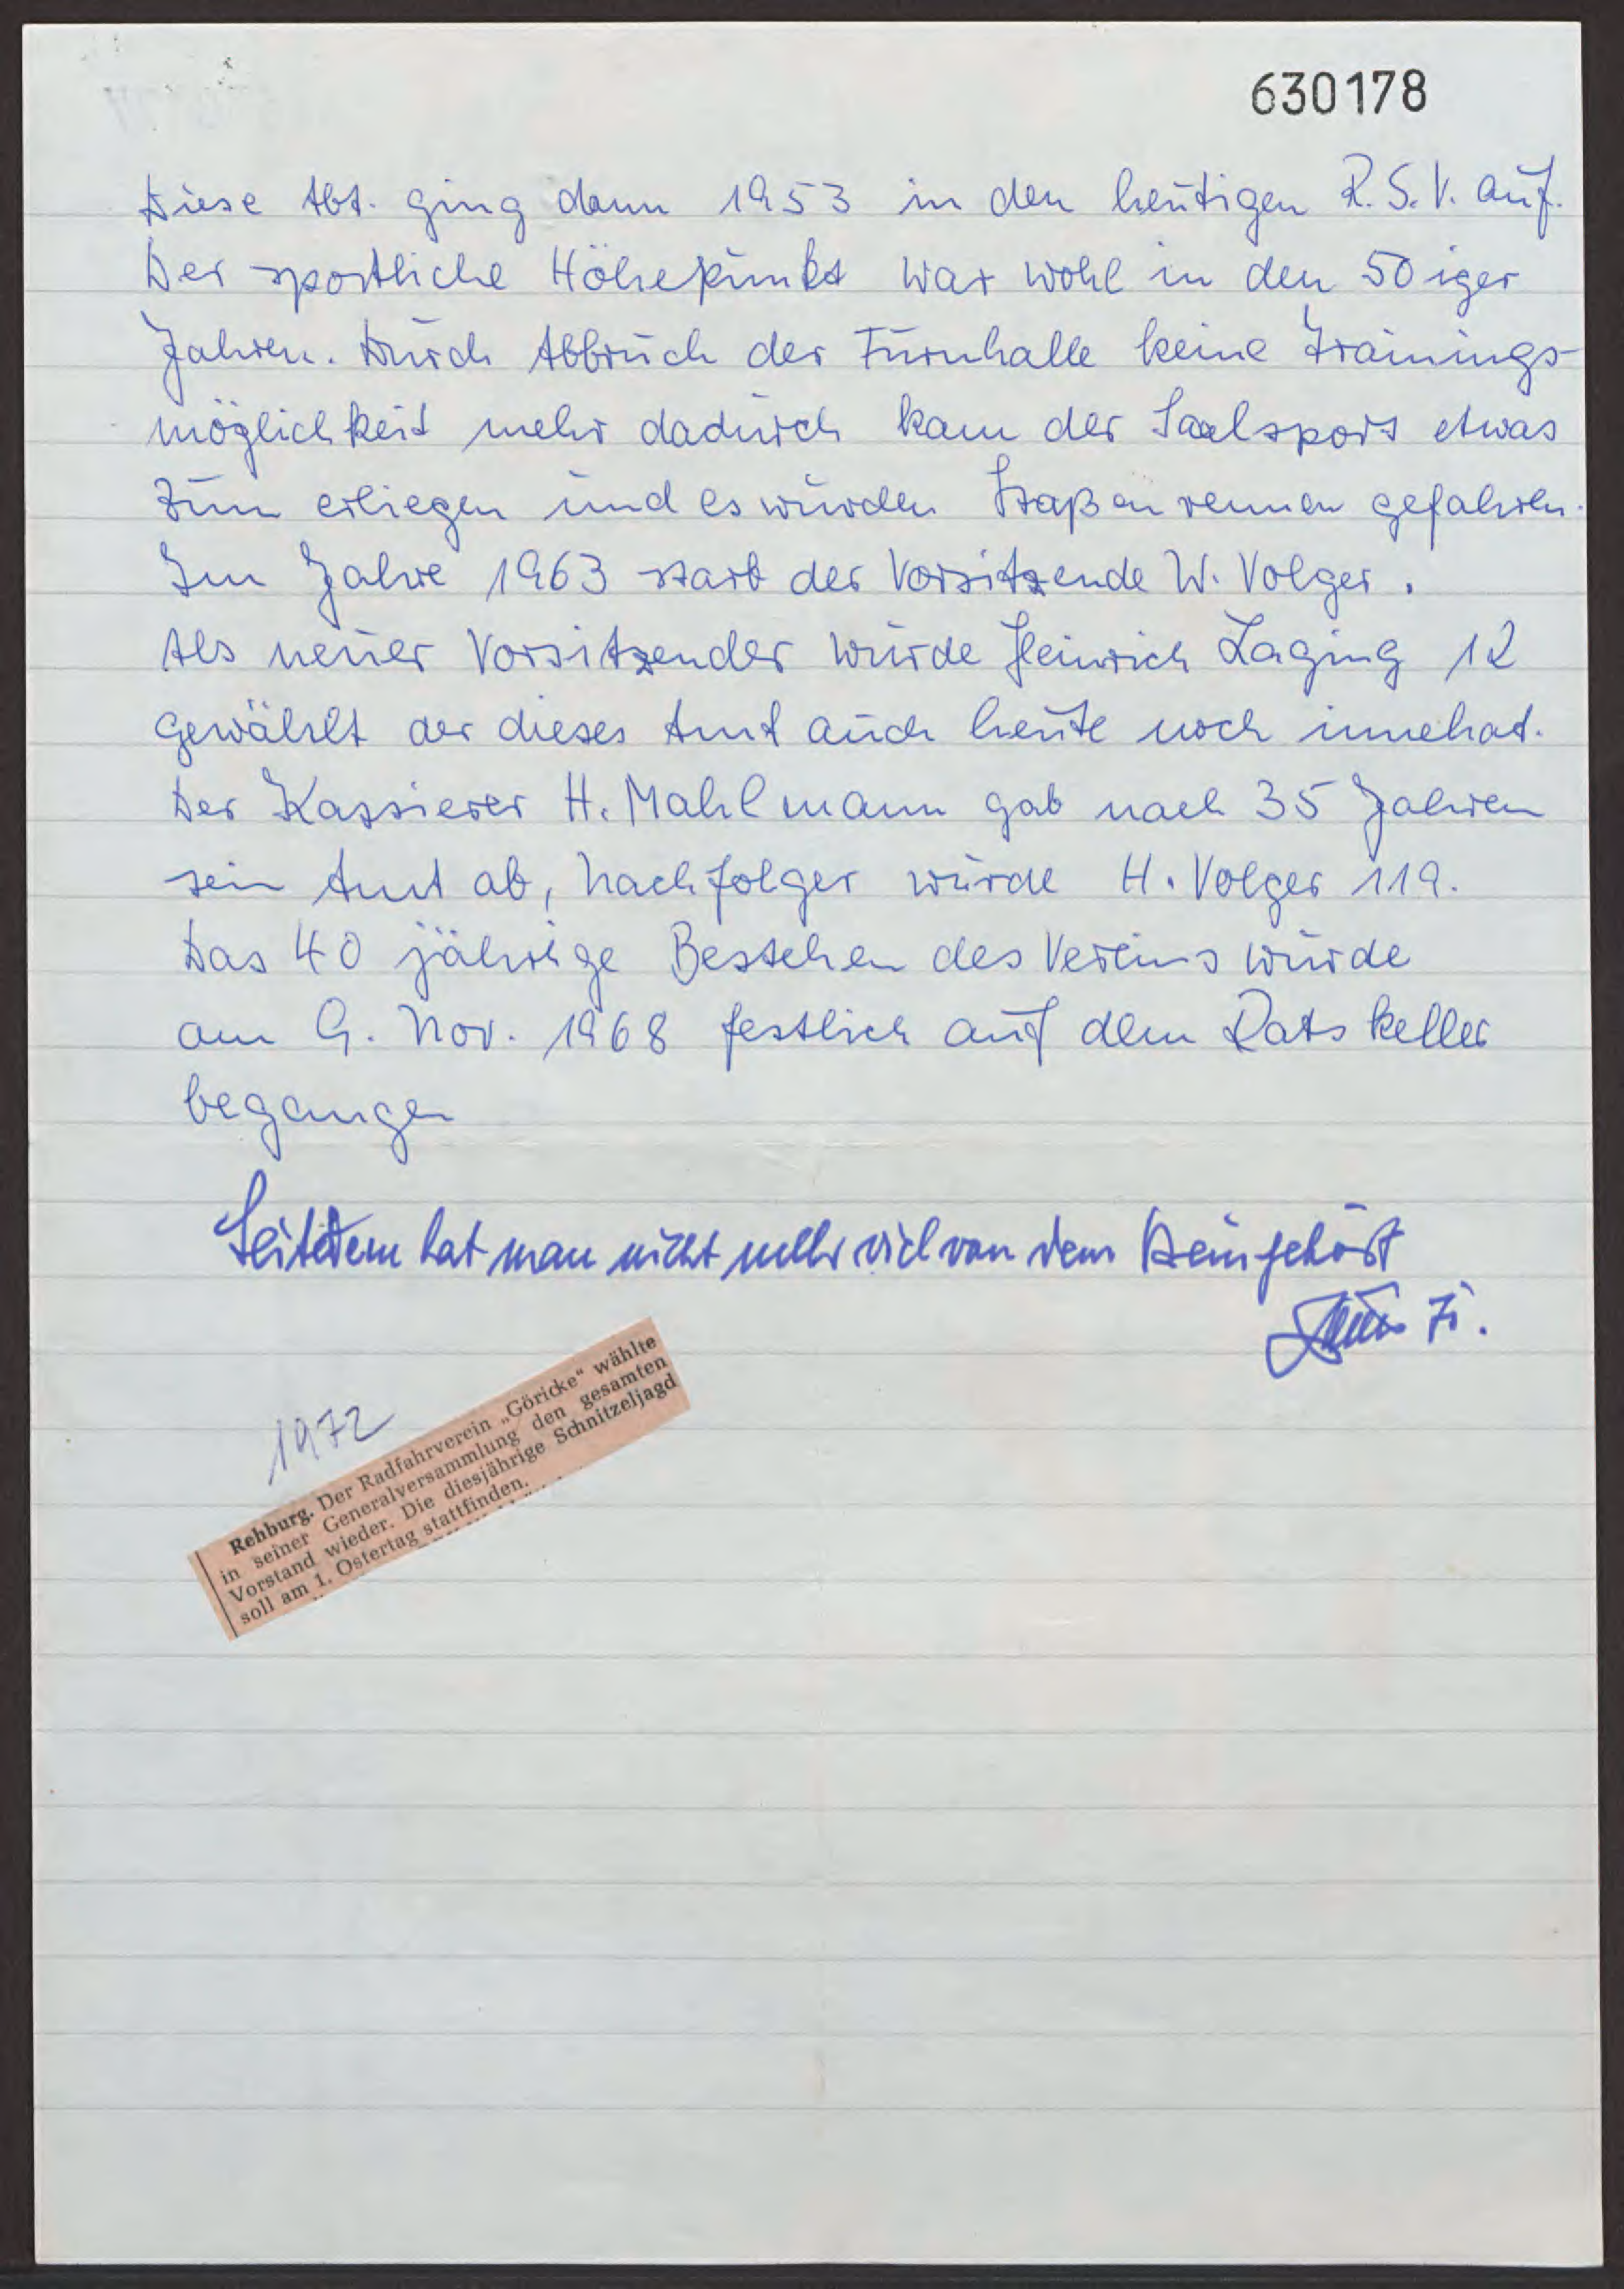 630178
Diese Abt. ging dann 1953 in den heutigen R.S.V. auf.
Der sportliche Höhepunkt war wohl in den 50iger
Jahren. Durch Abbruch der Turnhalle keine Trainings-
möglichkeit mehr dadurch kam der Saalsport etwas
zum erliegen und es wurden Staßenrennen gefahren.
Im Jahre 1963 starb der Vorsitzende W. Volger.
Als neuer Vorsitzender wurde Heinrich Laging 12
gewählt der dieses Amt auch heute noch innehat.
Der Kassierer H. Mahlmann gab nach 35 Jahren
sein Amt ab, Nachfolger wurde H. Volger 119.
Das 40 jährige Bestehen des Vereins wurde
am 9. Nov. 1968 festlich auf dem Ratskeller
begangen
Seitdem hat man nicht mehr viel von dem gehört
1972
Rehburg. Der Radfahrverein „Göricke“ wählte
in seiner Generalversammlung den gesamten
Vorstand wieder. Die diesjährige Schnitzeljagd
soll am 1. Ostertag stattfinden.